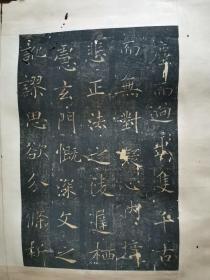 塵而迥出隻千古
而無對凝心內境
悲正法之陵遲栖
慮玄門慨深文之
訛謬思欲分條析